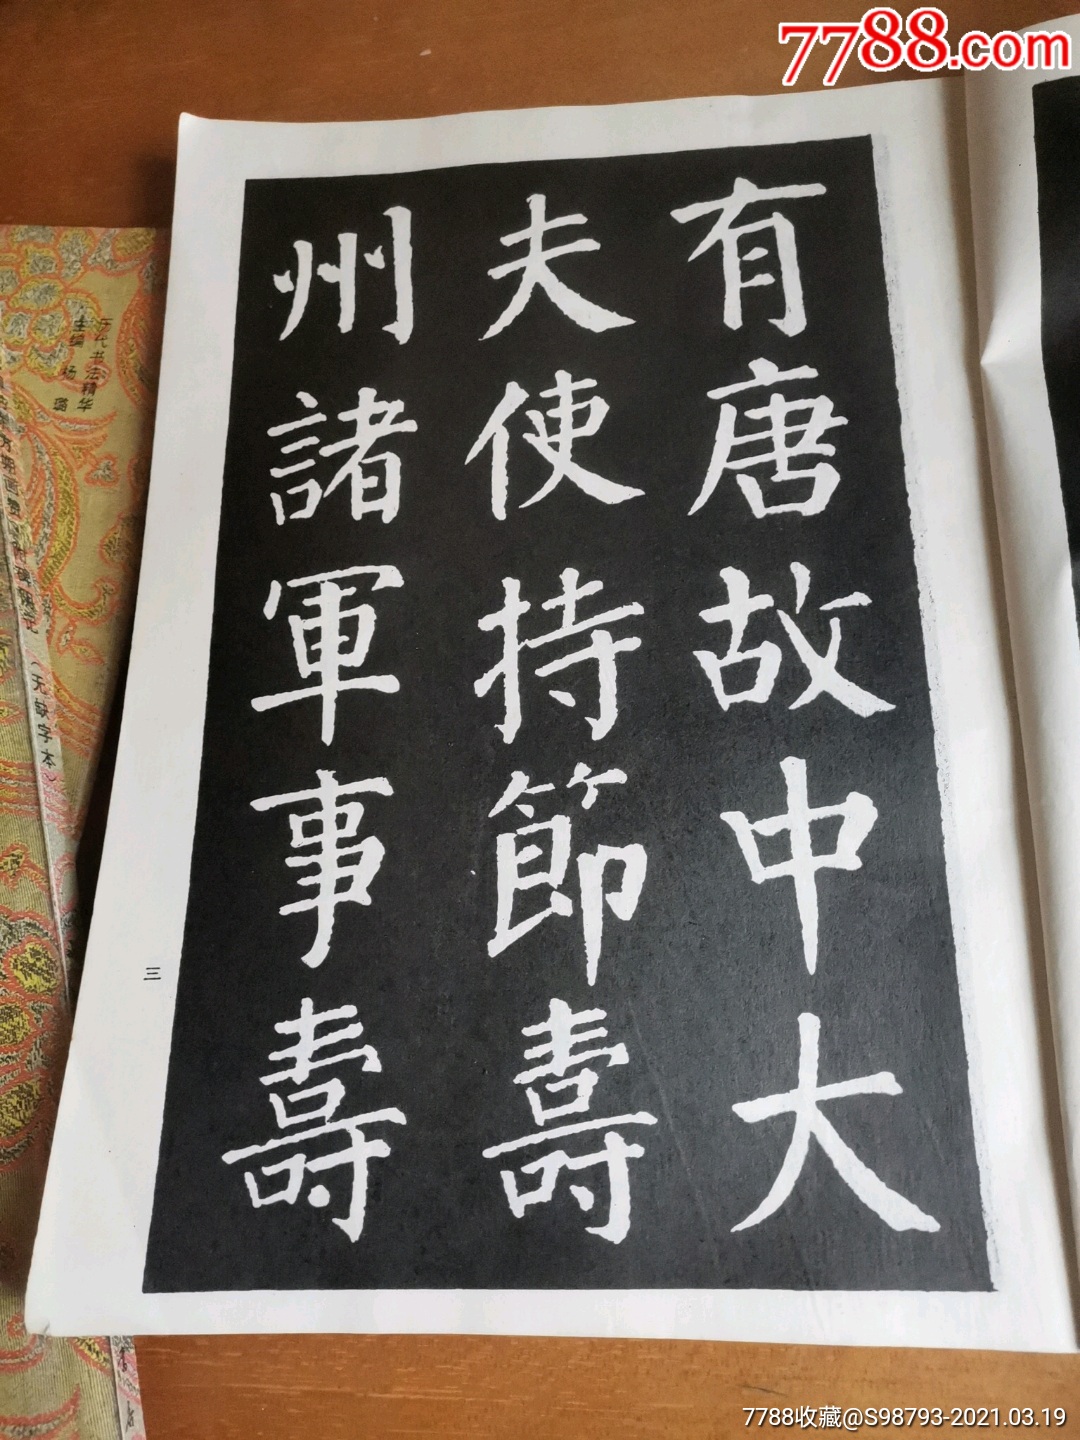 7788.com
有唐故中大
夫使持節壽
州諸軍事壽
三
历代书法精华
主编 杨璐
(无缺字本)
7788收藏@S98793-2021.03.19